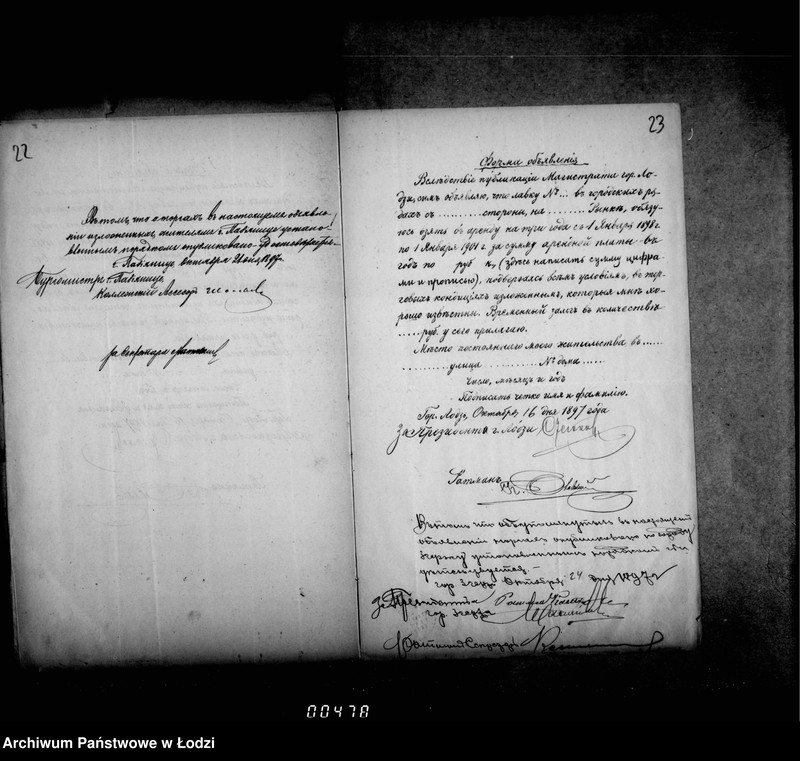 22
Въ томъ что о торгахъ въ настоящемъ объявле-
ніи изложенныхъ жителямъ г. Пабяницъ устано-
вленнымъ порядкомъ публиковано удостовѣряетъ.
г. Пабяницы Октября 21 дня 1897 г.
Бургомистръ г. Пабяницъ
Коллежскій Ассесоръ
за Секретаря
23
Форма объявленія
Вслѣдствіе публикаціи Магистрата гор. Ло-
дзи, симъ объявляю, что лавку №... въ городскихъ ря-
дахъ съ .......... стороны, на .......... Рынкѣ, обязу-
юсь взять въ аренду на три года съ 1 Января 1898 г.
по 1 Января 1901 г. за сумму арендной платы въ
годъ по руб. к. (здѣсь написать сумму цифра-
ми и прописью), подвергаясь всѣмъ условіямъ, въ тор-
говыхъ кондиціяхъ изложеннымъ, которыя мнѣ хо-
рошо извѣстны. Временный залогъ въ количествѣ
..... руб. у сего прилагаю.
Мѣсто постояннаго моего жительства въ .....
..... улица .......... № дома ....
Число, мѣсяцъ и годъ
Подписать четко имя и фамилію.
Гор. Лодзь, Октября 16 дня 1897 года
За Президента г. Лодзи
Ратманъ
Въ томъ что въ настоящемъ
объявленіи опубликовано по городу
Згержу установленнымъ порядкомъ
гор. Згержъ Октября 24 дня 1897 г.
За Президента
гор. Згержа
00478
Archiwum Państwowe w Łodzi